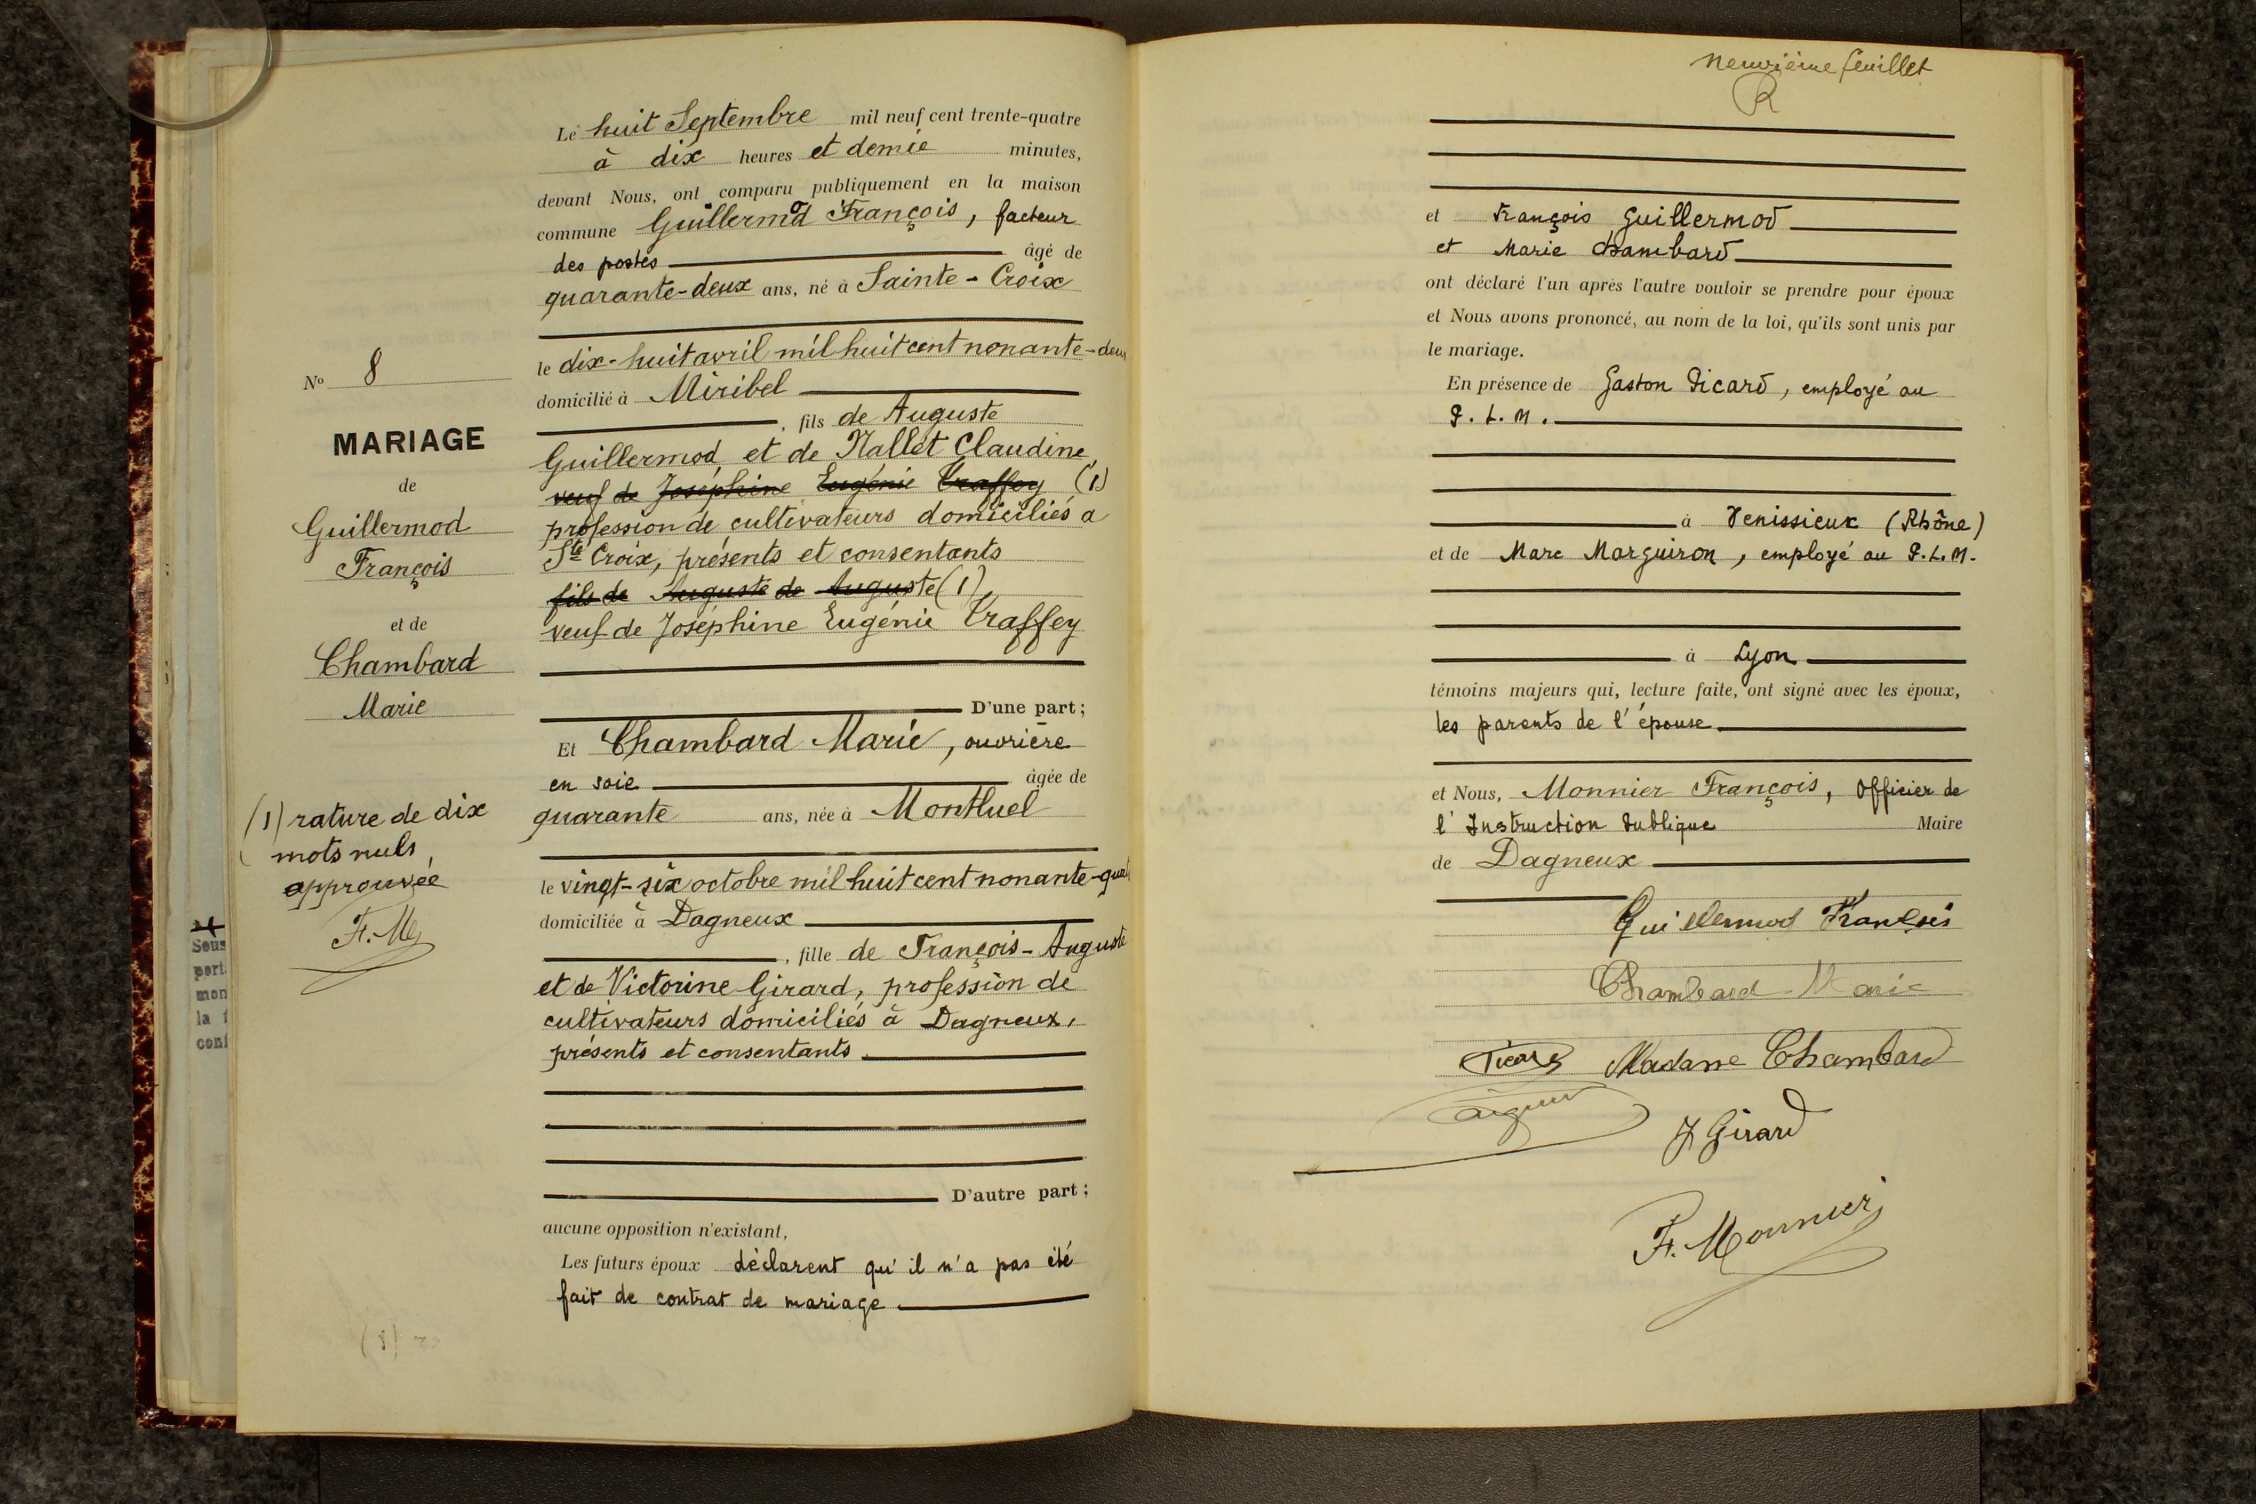 Le huit Septembre mil neuf cent trente-quatre
à dix heures et demie minutes,
devant Nous, ont comparu publiquement en la maison
commune Guillermod François, facteur
des postes âgé de
quarante-deux ans, né à Sainte-Croix
le dix-huit avril mil huit cent nonante-deux
domicilié à Miribel
, fils de Auguste
Guillermod et de Mallet Claudine,
veuf de Joséphine Eugénie Traffey (1)
profession de cultivateurs domiciliés a
Ste Croix, présents et consentants
fils de Auguste de Auguste (1)
veuf de Joséphine Eugénie Traffey
D'une part;
Et Chambard Marie, ouvrière
en soie âgée de
quarante ans, née à Montluel
le vingt-six octobre mil huit cent nonante-quat
domiciliée à Dagneux
, fille de François-Auguste
et de Victorine Girard, profession de
cultivateurs domiciliés à Dagneux,
présents et consentants
D'autre part;
aucune opposition n'existant,
Les futurs époux déclarent qu'il n'a pas été
fait de contrat de mariage
No 8
MARIAGE
de
Guillermod
François
et de
Chambard
Marie
(1) rature de dix
mots nuls
approuvée
F. M.
Sous
port
mon
la
con
neuvième feuillet
R
et François Guillermod
et Marie Chambard
ont déclaré l'un après l'autre vouloir se prendre pour époux
et Nous avons prononcé, au nom de la loi, qu'ils sont unis par
le mariage.
En présence de Gaston Picard, employé au
P. L. M.
à Venissieux (Rhône)
et de Marc Marguiron, employé au P.L.M.
à Lyon
témoins majeurs qui, lecture faite, ont signé avec les époux,
les parents de l'épouse
et Nous, Monnier François, Officier de
l'Instruction Publique Maire
de Dagneux
Guillermod François
Chambard Marie
Picard Madame Chambard
Girard
F. Monnier